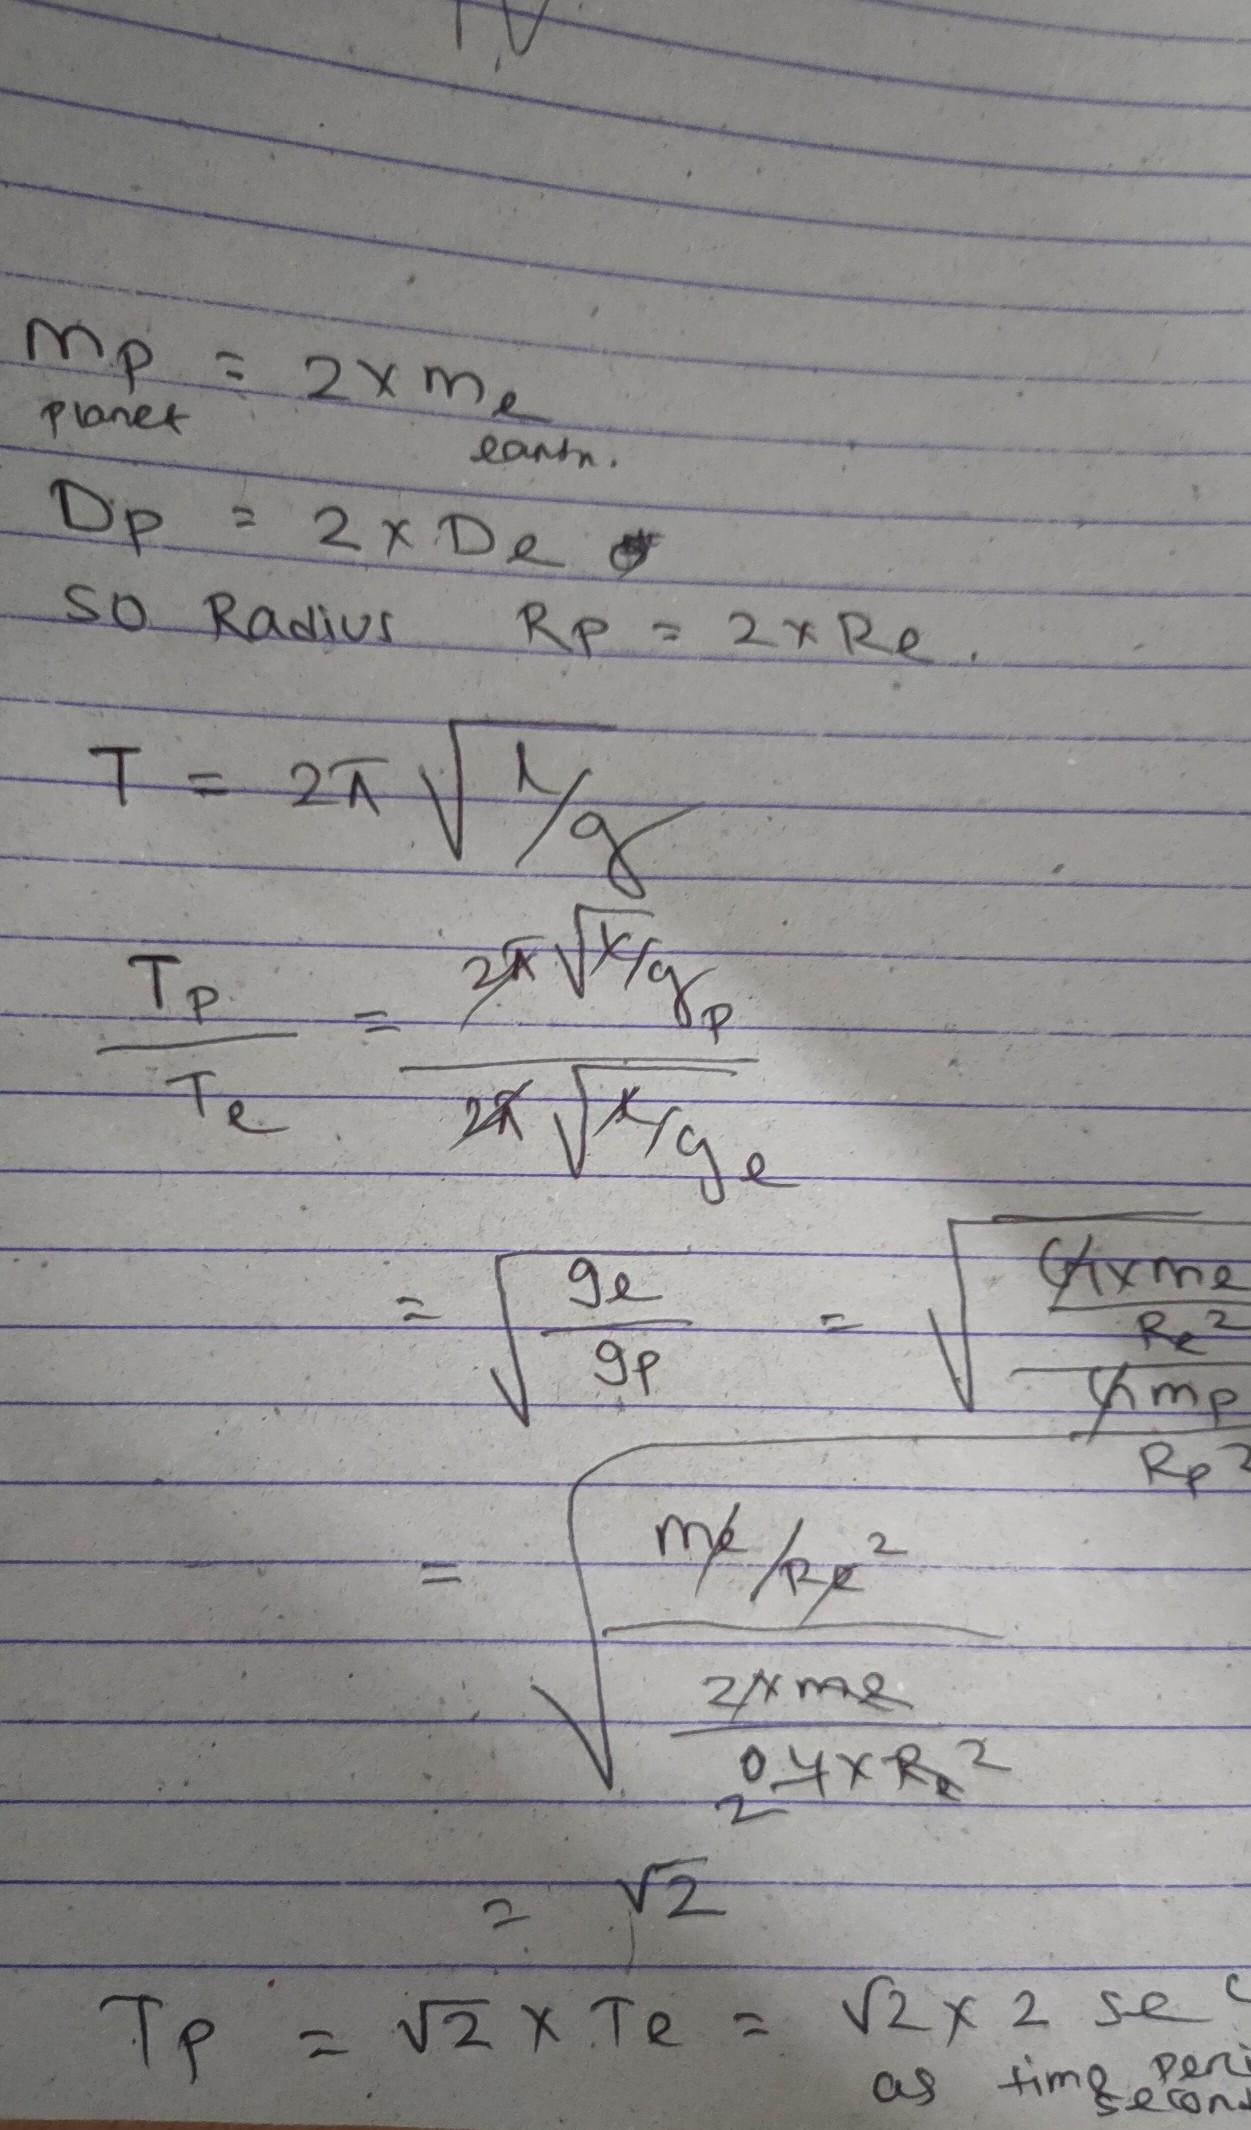 mp = 2 x me
planet earth.
Dp = 2 x De
SO Radius Rp = 2 x Re.
T = 2π √l/g
Tp/Te = 2π √l/gp / 2π √l/ge
= √ge/gp = √ G x me / Re² / G mp / Rp²
= √ me/Re² / 2 x me / 4 x Re²
2
= √2
Tp = √2 x Te = √2 x 2 sec
as time